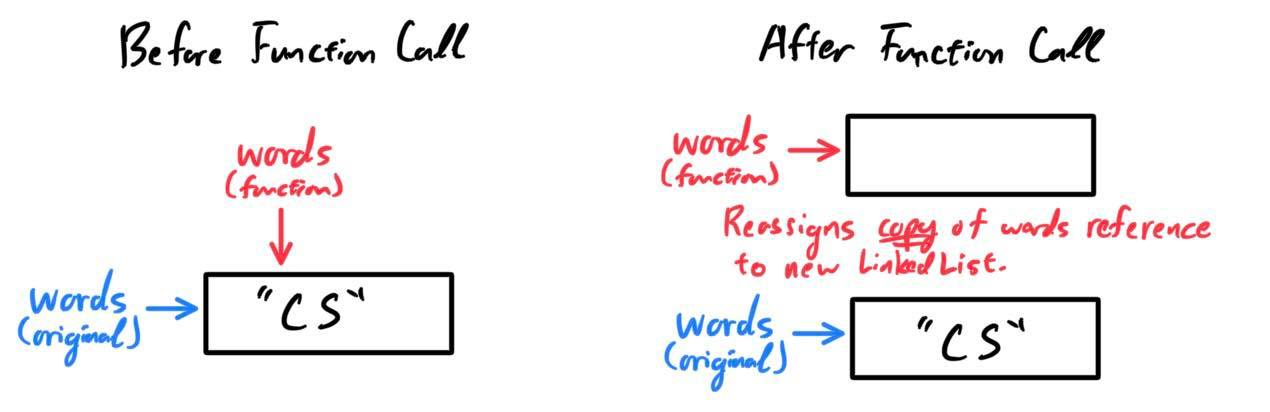 Before Function Call
words
(function)
words
(original)
"CS"
After Function Call
words
(function)
Reassigns copy of words reference
to new LinkedList.
words
(original)
"CS"